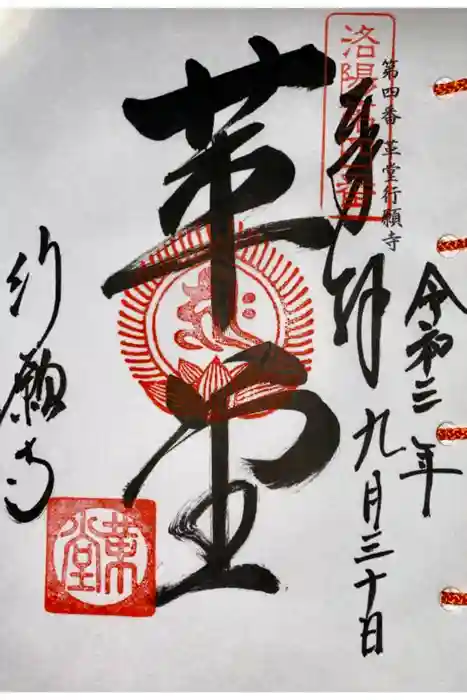 令和三年
九月三十日
第四番 革堂行願寺
奉拝
洛陽第四番
革堂
行願寺
革堂